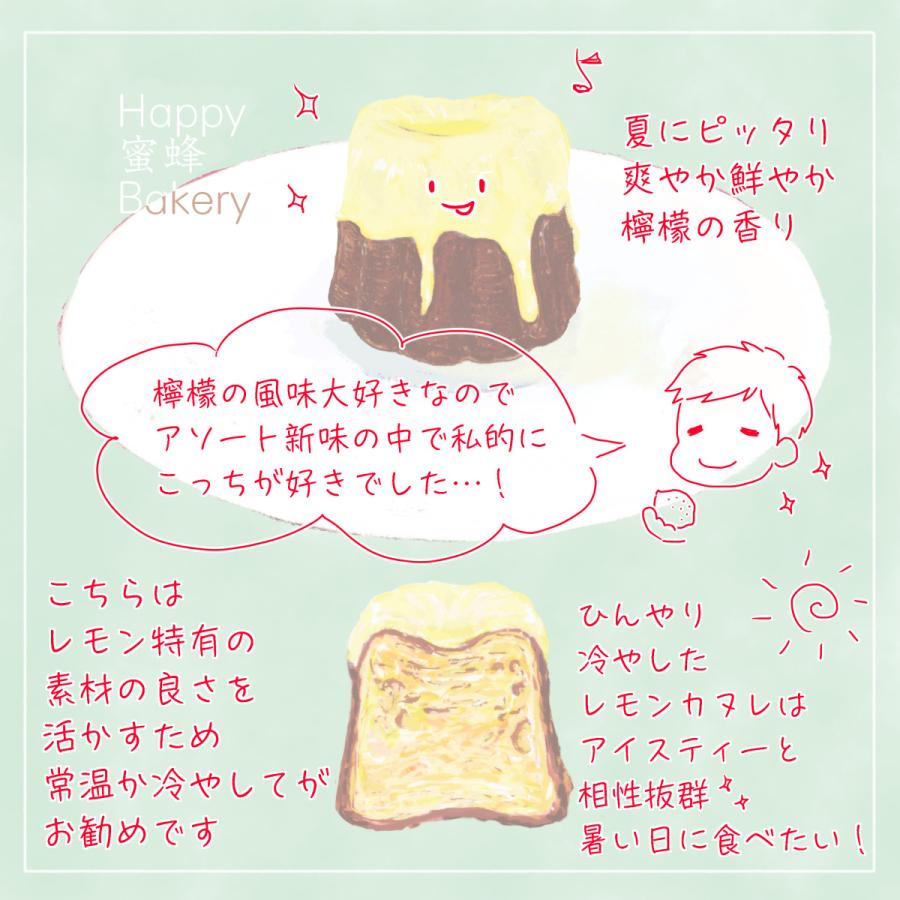 Happy
蜜蜂
Bakery
夏にピッタリ
爽やか鮮やか
檸檬の香り
檸檬の風味大好きなので
アソート新味の中で私的に
こっちが好きでした…！
こちらは
レモン特有の
素材の良さを
活かすため
常温か冷やしてが
お勧めです
ひんやり
冷やした
レモンカヌレは
アイスティーと
相性抜群
暑い日に食べたい！